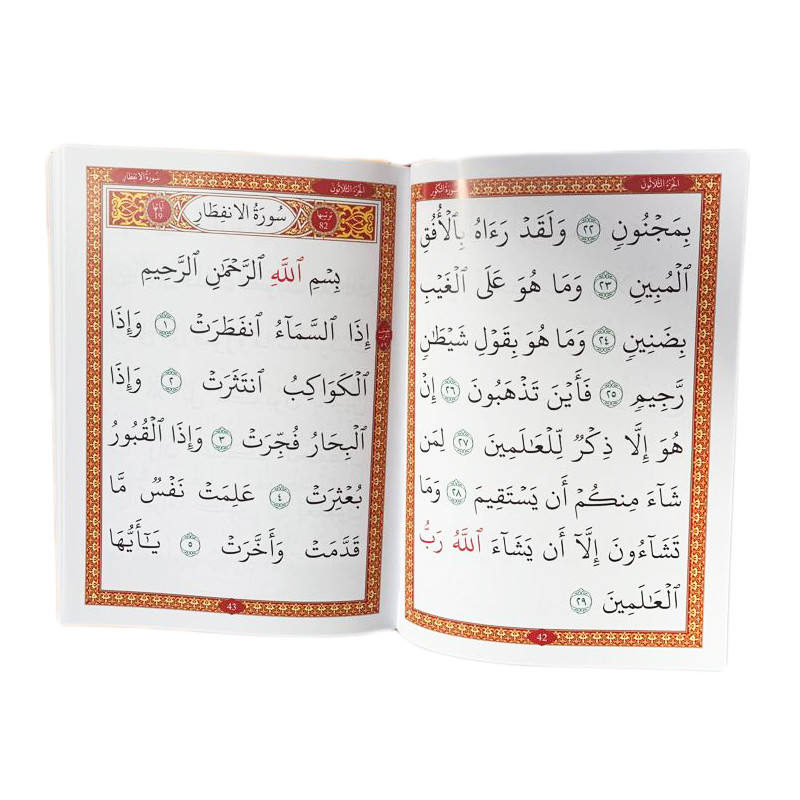 الجزء الثلاثون
سورة التكوير
بِمَجْنُونٍ ٢٢ وَلَقَدْ رَءَاهُ بِالْأُفُقِ
الْمُبِينِ ٢٣ وَمَا هُوَ عَلَى الْغَيْبِ
بِضَنِينٍ ٢٤ وَمَا هُوَ بِقَوْلِ شَيْطَٰنٍ
رَّجِيمٍ ٢٥ فَأَيْنَ تَذْهَبُونَ ٢٦ إِنْ
هُوَ إِلَّا ذِكْرٌ لِّلْعَٰلَمِينَ ٢٧ لِمَن
شَآءَ مِنكُمْ أَن يَسْتَقِيمَ ٢٨ وَمَا
تَشَآءُونَ إِلَّآ أَن يَشَآءَ اللَّهُ رَبُّ
الْعَٰلَمِينَ ٢٩
42
الجزء الثلاثون
سورة الانفطار
ترتيبها 82
سُورَةُ الِانفِطَارِ
آياتها 19
بِسْمِ اللَّهِ الرَّحْمَٰنِ الرَّحِيمِ
إِذَا السَّمَآءُ انفَطَرَتْ ١ وَإِذَا
الْكَوَاكِبُ انتَثَرَتْ ٢ وَإِذَا
الْبِحَارُ فُجِّرَتْ ٣ وَإِذَا الْقُبُورُ
بُعْثِرَتْ ٤ عَلِمَتْ نَفْسٌ مَّا
قَدَّمَتْ وَأَخَّرَتْ ٥ يَٰٓأَيُّهَا
43